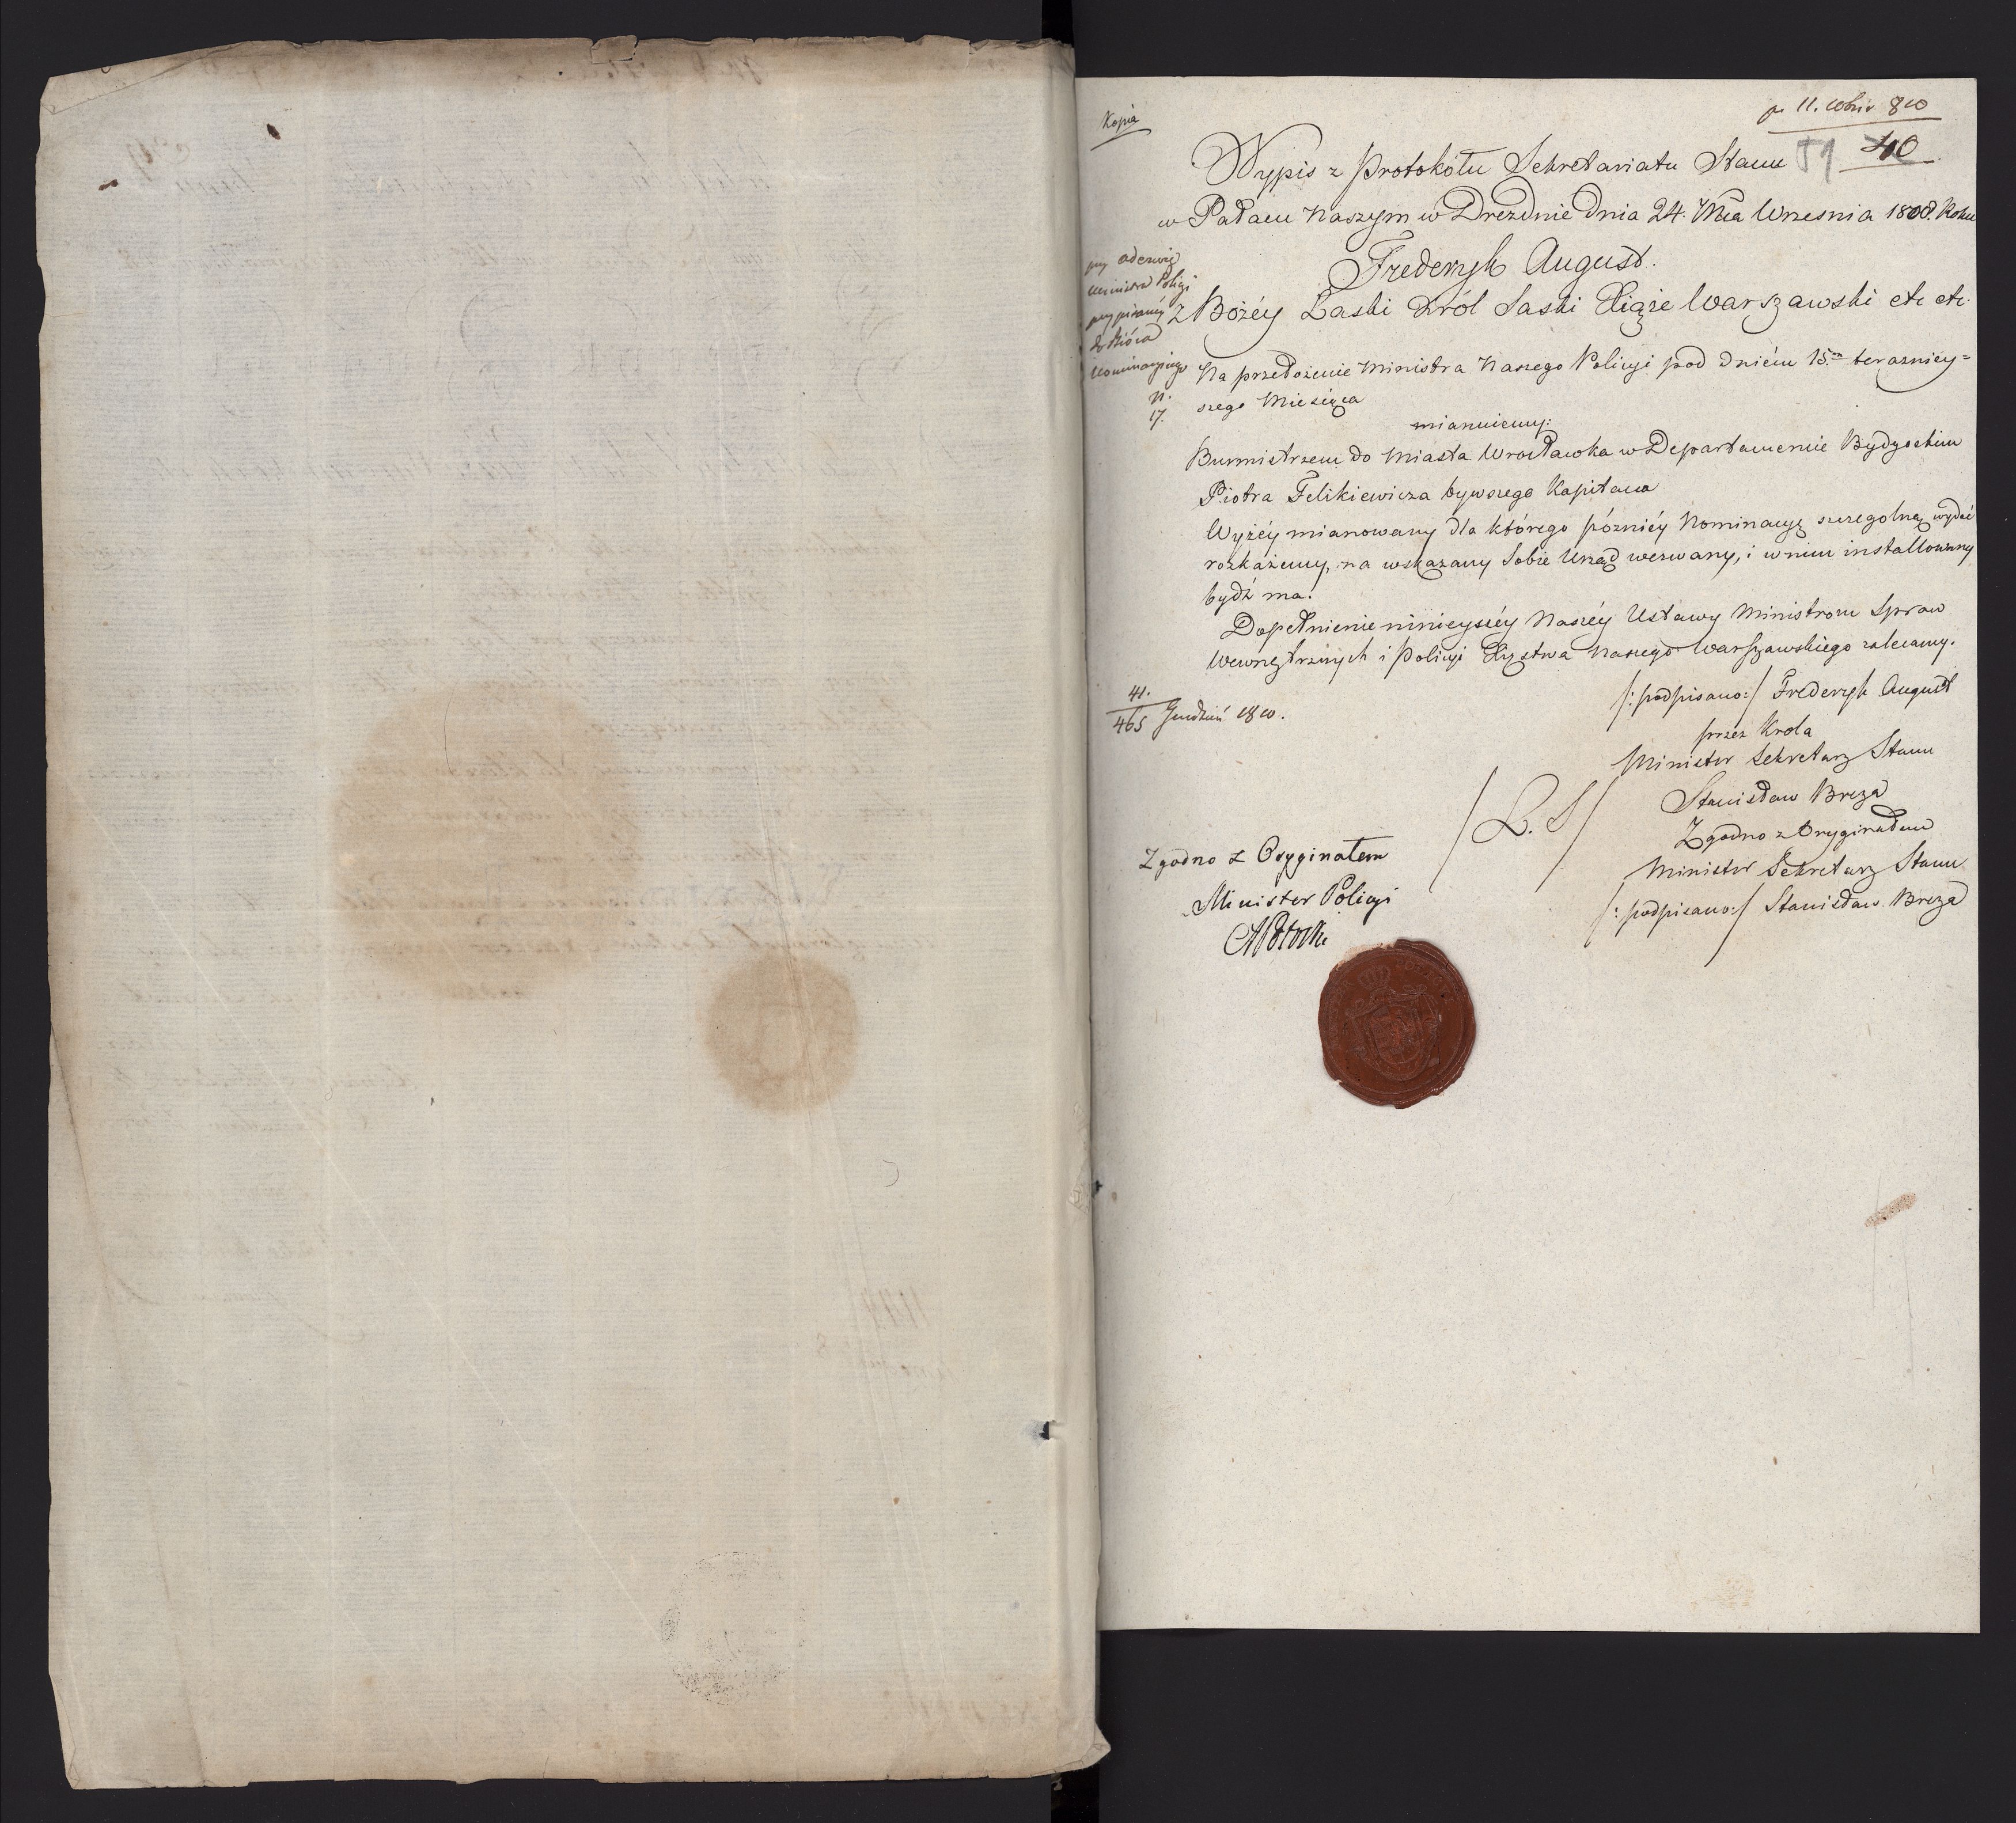 Kopia
11. 810
40
59
Wypis z Protokółu Sekretariatu Stanu
w Pałacu Naszym w Dreznie Dnia 24. Mca Wrzesnia 1808. Roku
Fryderyk August.
Z Bożéy Łaski Król Saski Xiąże Warszawski etc etc.
przy odezwie
Ministra Policyi
przypisany
do
Nominacyinego
N.
17.
Na przełożenie Ministra Naszego Policyi pod dniém 15.m terazniey=
szego Miesiąca
mianuiemy:
Burmistrzem do Miasta Wrocławka w Departamencie Bydgoskim
Piotra Felikiewicza bywszego Kapitana
Wyżéy mianowany dla którego pózniéy Nominacyę szczegolną wydać
rozkażemy, na wskazany Sobie Urząd wezwany, i w nim installowany
bydź ma.
Dopełnienie ninieyszéy Naszéy Ustawy Ministrom Spraw
Wewnętrznych i Policyi Xięstwa Naszego Warszawskiego zalecamy.
41.
465 Grudzień 810.
/: podpisano:/ Fryderyk August
przez Krola
Minister Sekretarz Stanu
Stanisław Breza
/L. S/
Zgodno z Oryginałem
Minister Sekretarz Stanu
/: podpisano:/ Stanisław Breza
Zgodno z Oryginałem
Minister Policyi
APotocki